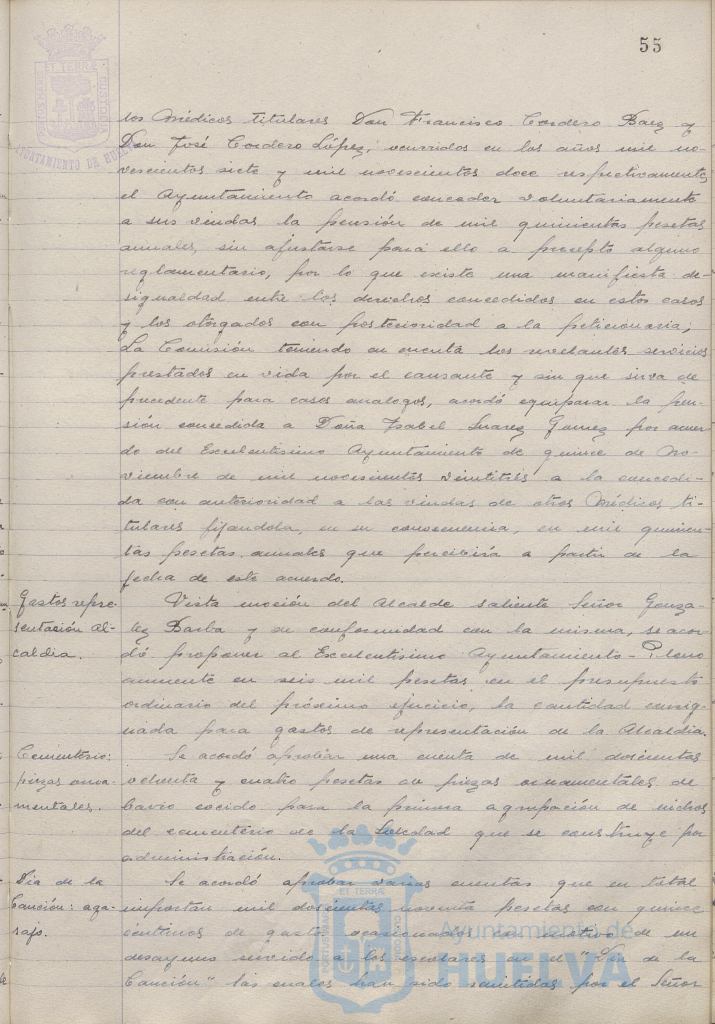 55
los Médicos titulares Don Francisco Cordero Baez y
Don José Cordero López, ocurridos en los años mil no-
vescientos siete y mil novescientos doce respectivamente,
el Ayuntamiento acordó conceder voluntariamente
a sus viudas la pensión de mil quinientas pesetas
anuales, sin ajustarse para ello a precepto alguno
reglamentario, por lo que existe una manifiesta de-
sigualdad entre los derechos concedidos en estos casos
y los otorgados con posterioridad a la peticionaria;
La Comisión teniendo en cuenta los relevantes servicios
prestados en vida por el causante y sin que sirva de
precedente para casos analogos, acordó equiparar la pen-
sión concedida a Doña Isabel Suarez Gamez por acuer-
do del Excelentisimo Ayuntamiento de quince de No-
viembre de mil novescientos veintitres a la concedi-
da con anterioridad a las viudas de otros Médicos ti-
tulares fijandola, en su consecuencia, en mil quinien-
tas pesetas anuales que percibirá a partir de la
fecha de este acuerdo.
Gastos repre-
sentación Al-
caldia.
Vista moción del Alcalde saliente Señor Gonza-
lez Barba y de conformidad con la misma, se acor-
dó proponer al Excelentisimo Ayuntamiento-Pleno
aumente en seis mil pesetas en el presupuesto
ordinario del próximo ejercicio, la cantidad consig-
nada para gastos de representación de la Alcaldia.
Cementerio:
piezas orna-
mentales.
Se acordó aprobar una cuenta de mil doscientas
ochenta y cuatro pesetas de piezas ornamentales de
barro cocido para la primera agrupación de nichos
del cementerio de la Soledad que se construye por
administración.
Dia de la
Canción: aga-
sajo.
Se acordó aprobar varias cuentas que en total
importan mil doscientas noventa pesetas con quince
centimos de gastos ocasionados con motivo de un
desayuno servido a los escolares en el "Dia de la
Canción" las cuales han sido remitidas por el Señor
Ayuntamiento de
HUELVA